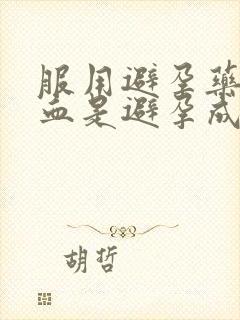 服用避孕药
血是避孕成
胡哲